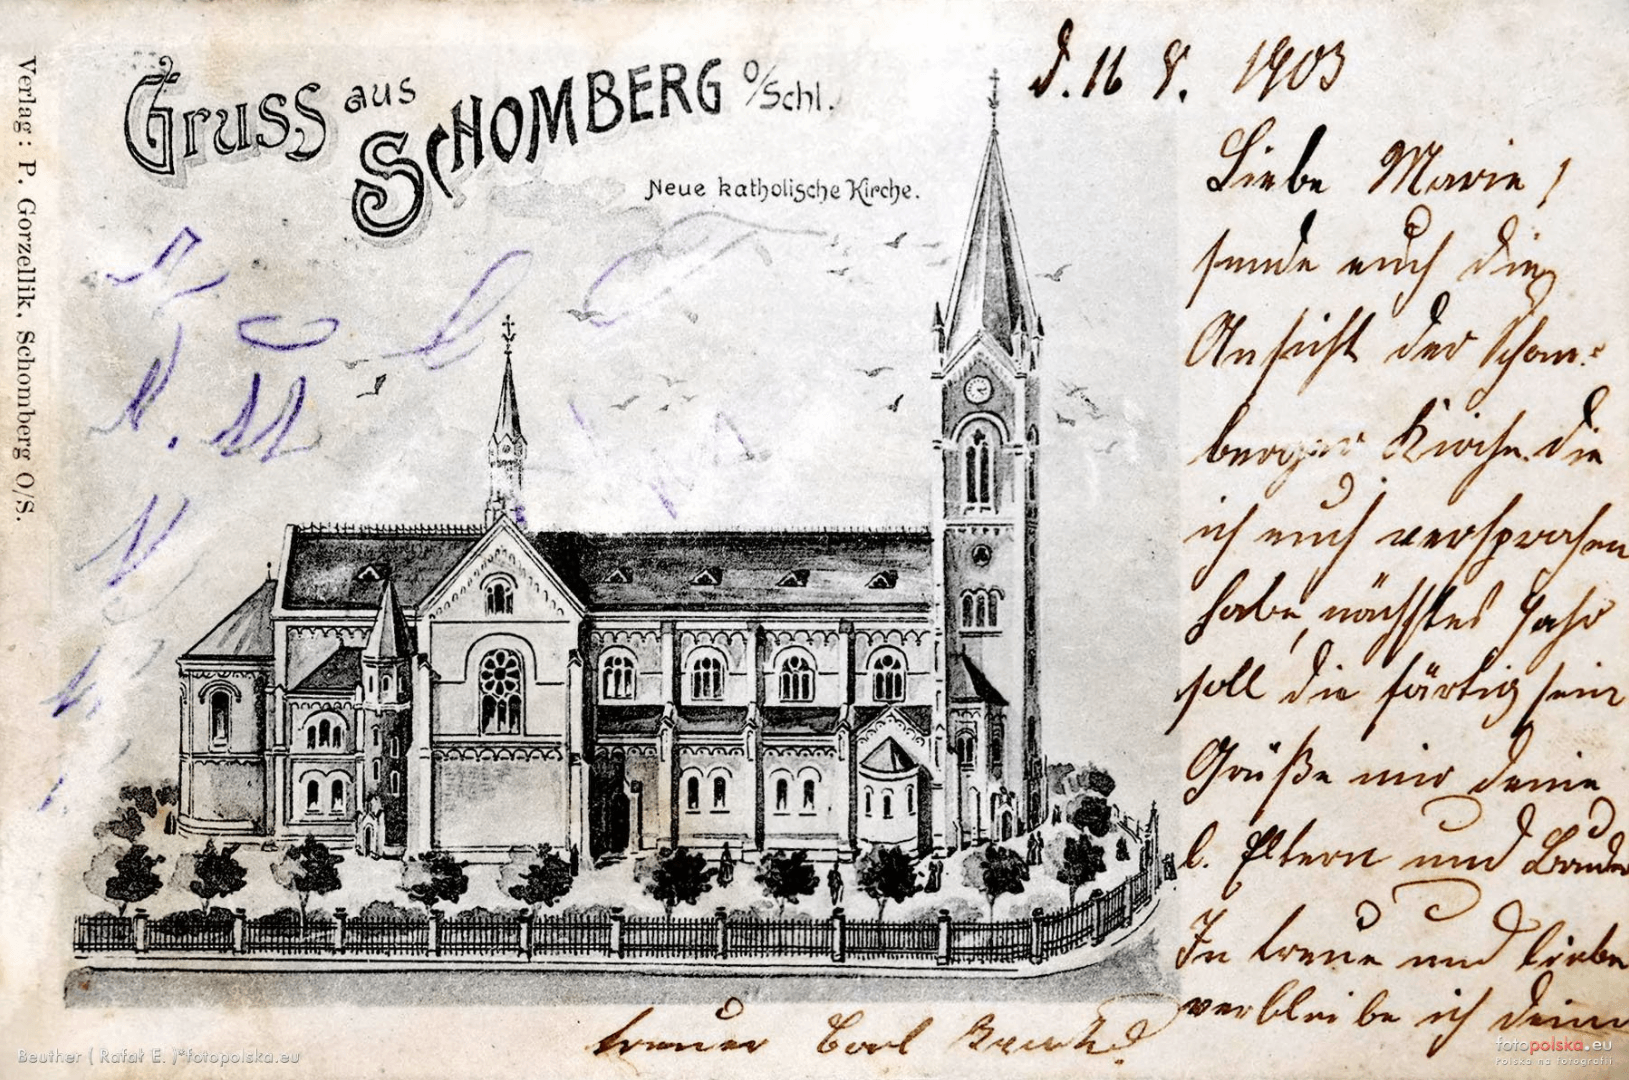 Gruss aus
SCHOMBERG O/Schl.
Neue katholische Kirche.
Verlag: P. Gorzellik, Schomberg O/S.
d. 16 8. 1903
Liebe Marie!
sende euch die
Ansicht der Schom-
berger Kirche die
ich euch versprochen
habe, nächstes Jahr
soll die färtig sein
Grüße mir deine
l. Eltern und Bruder
In treue und liebe
verbleibe ich dein
treuer Carl
Beuther ( Rafał E. )*fotopolska.eu
fotopolska.eu
Polska na fotografii